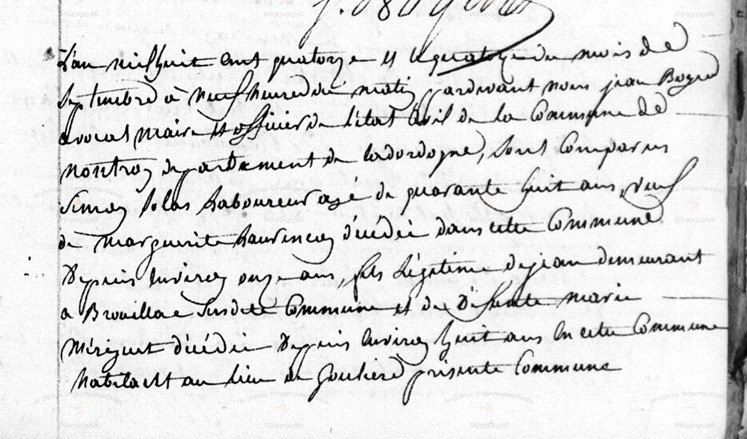 L'an mil huit cent quatorze et le quatorze du mois de
Septembre à neuf heures du matin pardevant nous jean Boyer
avocat maire et officier de l'état Civil de la Commune de
nontron departement de la dordogne, sont Comparus
Simon Laboureur agé de quarante huit ans, veuf
de marguerite Laurencon décédée dans cette Commune
Depuis environ onze ans, fils Légitime de jean demeurant
a Brouillac susdite Commune et de Défunte marie
Mériguet décédée Depuis environ huit ans en cette Commune
habitant au lieu de présente Commune